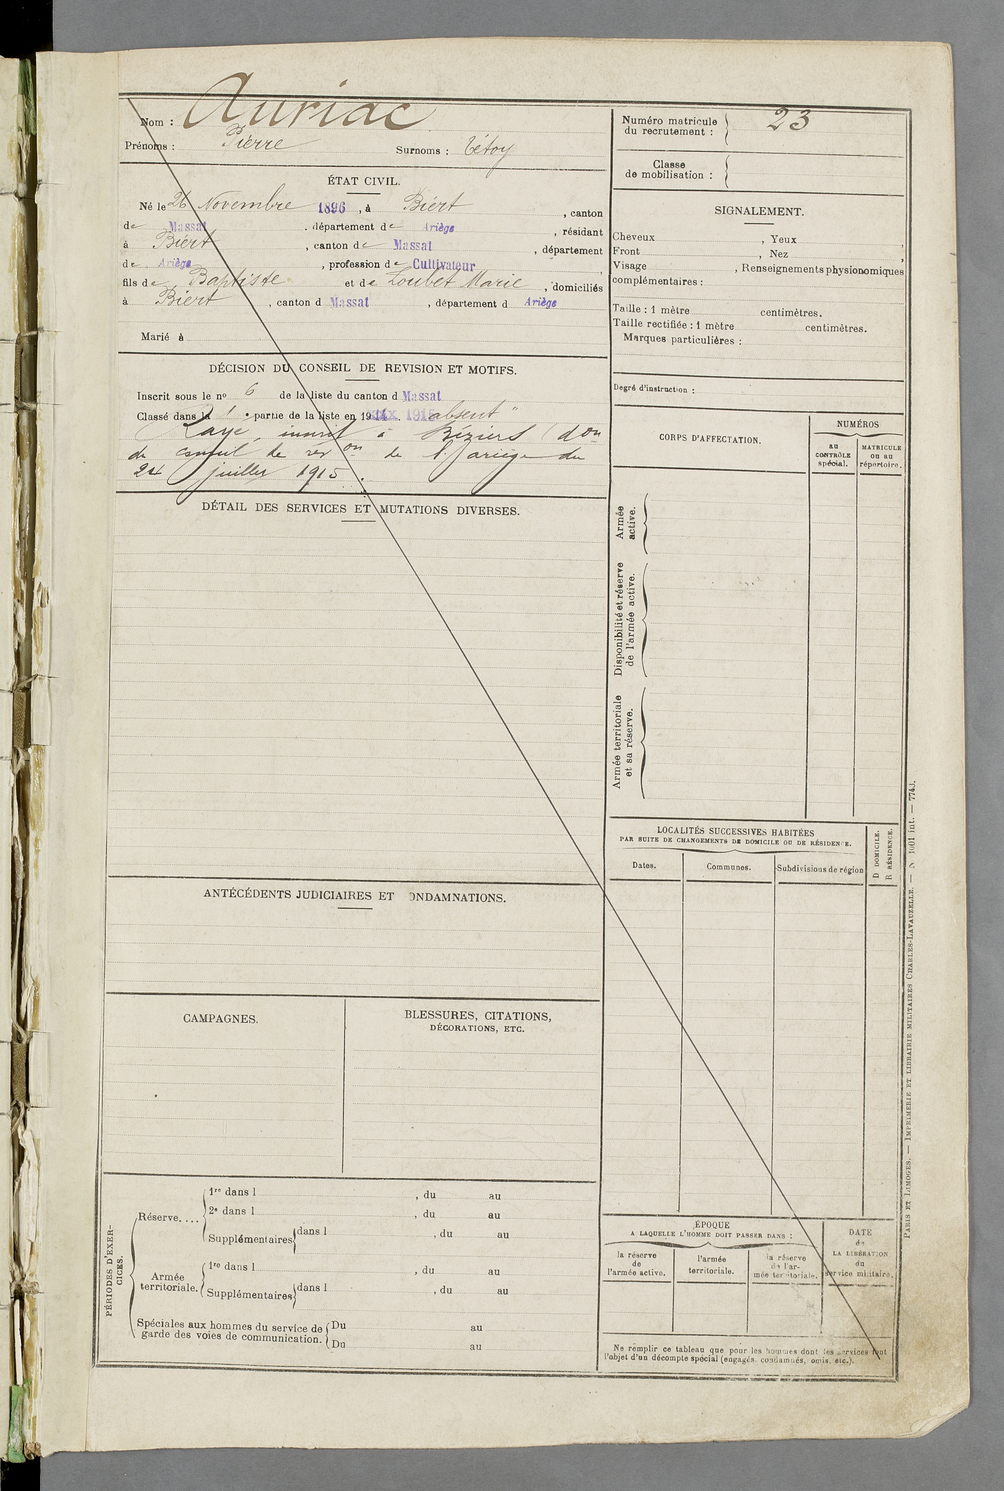 Nom : Auriac
Prénoms : Pierre Surnoms : Tétoy
ÉTAT CIVIL.
Né le 26 Novembre 1896, à Biert, canton
de Massat, département de Ariège, résidant
à Biert, canton de Massat, département
de Ariège, profession de Cultivateur,
fils de Baptiste et de Loubet Marie, domiciliés
à Biert, canton d Massat, département d Ariège
Marié à
DÉCISION DU CONSEIL DE REVISION ET MOTIFS.
Inscrit sous le no 6 de la liste du canton d Massat
Classé dans la 1 partie de la liste en 19 1915 "absent"
Rayé, inscrit à Béziers (don
de conseil de révon de l'Ariège du
24 juillet 1915.
DÉTAIL DES SERVICES ET MUTATIONS DIVERSES.
ANTÉCÉDENTS JUDICIAIRES ET ONDAMNATIONS.
CAMPAGNES.
BLESSURES, CITATIONS,
DÉCORATIONS, ETC.
PÉRIODES D'EXER-
CICES.
Réserve....
1re dans l , du au
2e dans l , du au
Supplémentaires dans l , du au
Armée
territoriale.
1re dans l , du au
Supplémentaires dans l , du au
Spéciales aux hommes du service de
garde des voies de communication.
Du au
Du au
Numéro matricule
du recrutement : 23
Classe
de mobilisation :
SIGNALEMENT.
Cheveux , Yeux ,
Front , Nez ,
Visage , Renseignements physionomiques
complémentaires :
Taille : 1 mètre centimètres.
Taille rectifiée : 1 mètre centimètres.
Marques particulières :
Degré d'instruction :
CORPS D'AFFECTATION.
NUMÉROS
au
CONTRÔLE
spécial.
MATRICULE
ou au
répertoire.
Armée
active.
Disponibilité et réserve
de l'armée active.
Armée territoriale
et sa réserve.
LOCALITÉS SUCCESSIVES HABITÉES
PAR SUITE DE CHANGEMENTS DE DOMICILE OU DE RÉSIDENCE.
D DOMICILE.
R RÉSIDENCE.
Dates. Communes. Subdivisions de région
ÉPOQUE
A LAQUELLE L'HOMME DOIT PASSER DANS :
la réserve
de
l'armée active.
l'armée
territoriale.
la réserve
de l'ar-
mée territoriale.
DATE
de
LA LIBÉRATION
du
service militaire.
Ne remplir ce tableau que pour les hommes dont les services font
l'objet d'un décompte spécial (engagés, condamnés, omis, etc.).
PARIS ET LIMOGES. — IMPRIMERIE ET LIBRAIRIE MILITAIRES CHARLES-LAVAUZELLE. — N° 1001 int. — 7743.